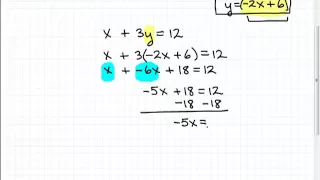 y=(-2x+6)
x + 3y = 12
x + 3(-2x+6) = 12
x + -6x + 18 = 12
-5x + 18 = 12
-18 -18
-5x =